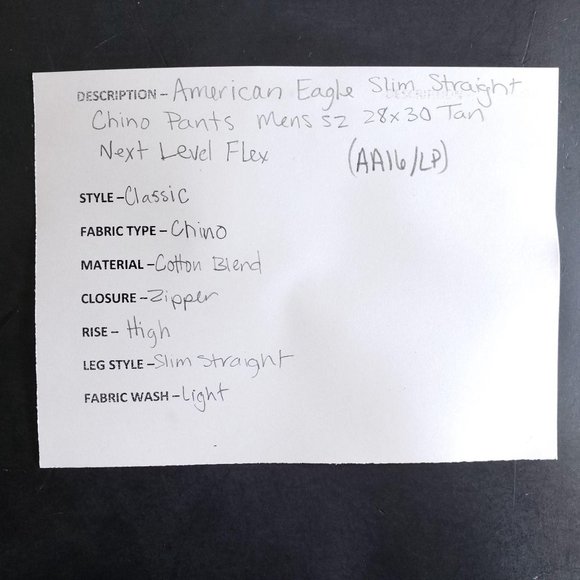 DESCRIPTION – American Eagle Slim Straight
Chino Pants Mens SZ 28x30 Tan
Next Level Flex (AA16/LP)
STYLE – Classic
FABRIC TYPE – Chino
MATERIAL – Cotton Blend
CLOSURE – Zipper
RISE – High
LEG STYLE – Slim Straight
FABRIC WASH – Light